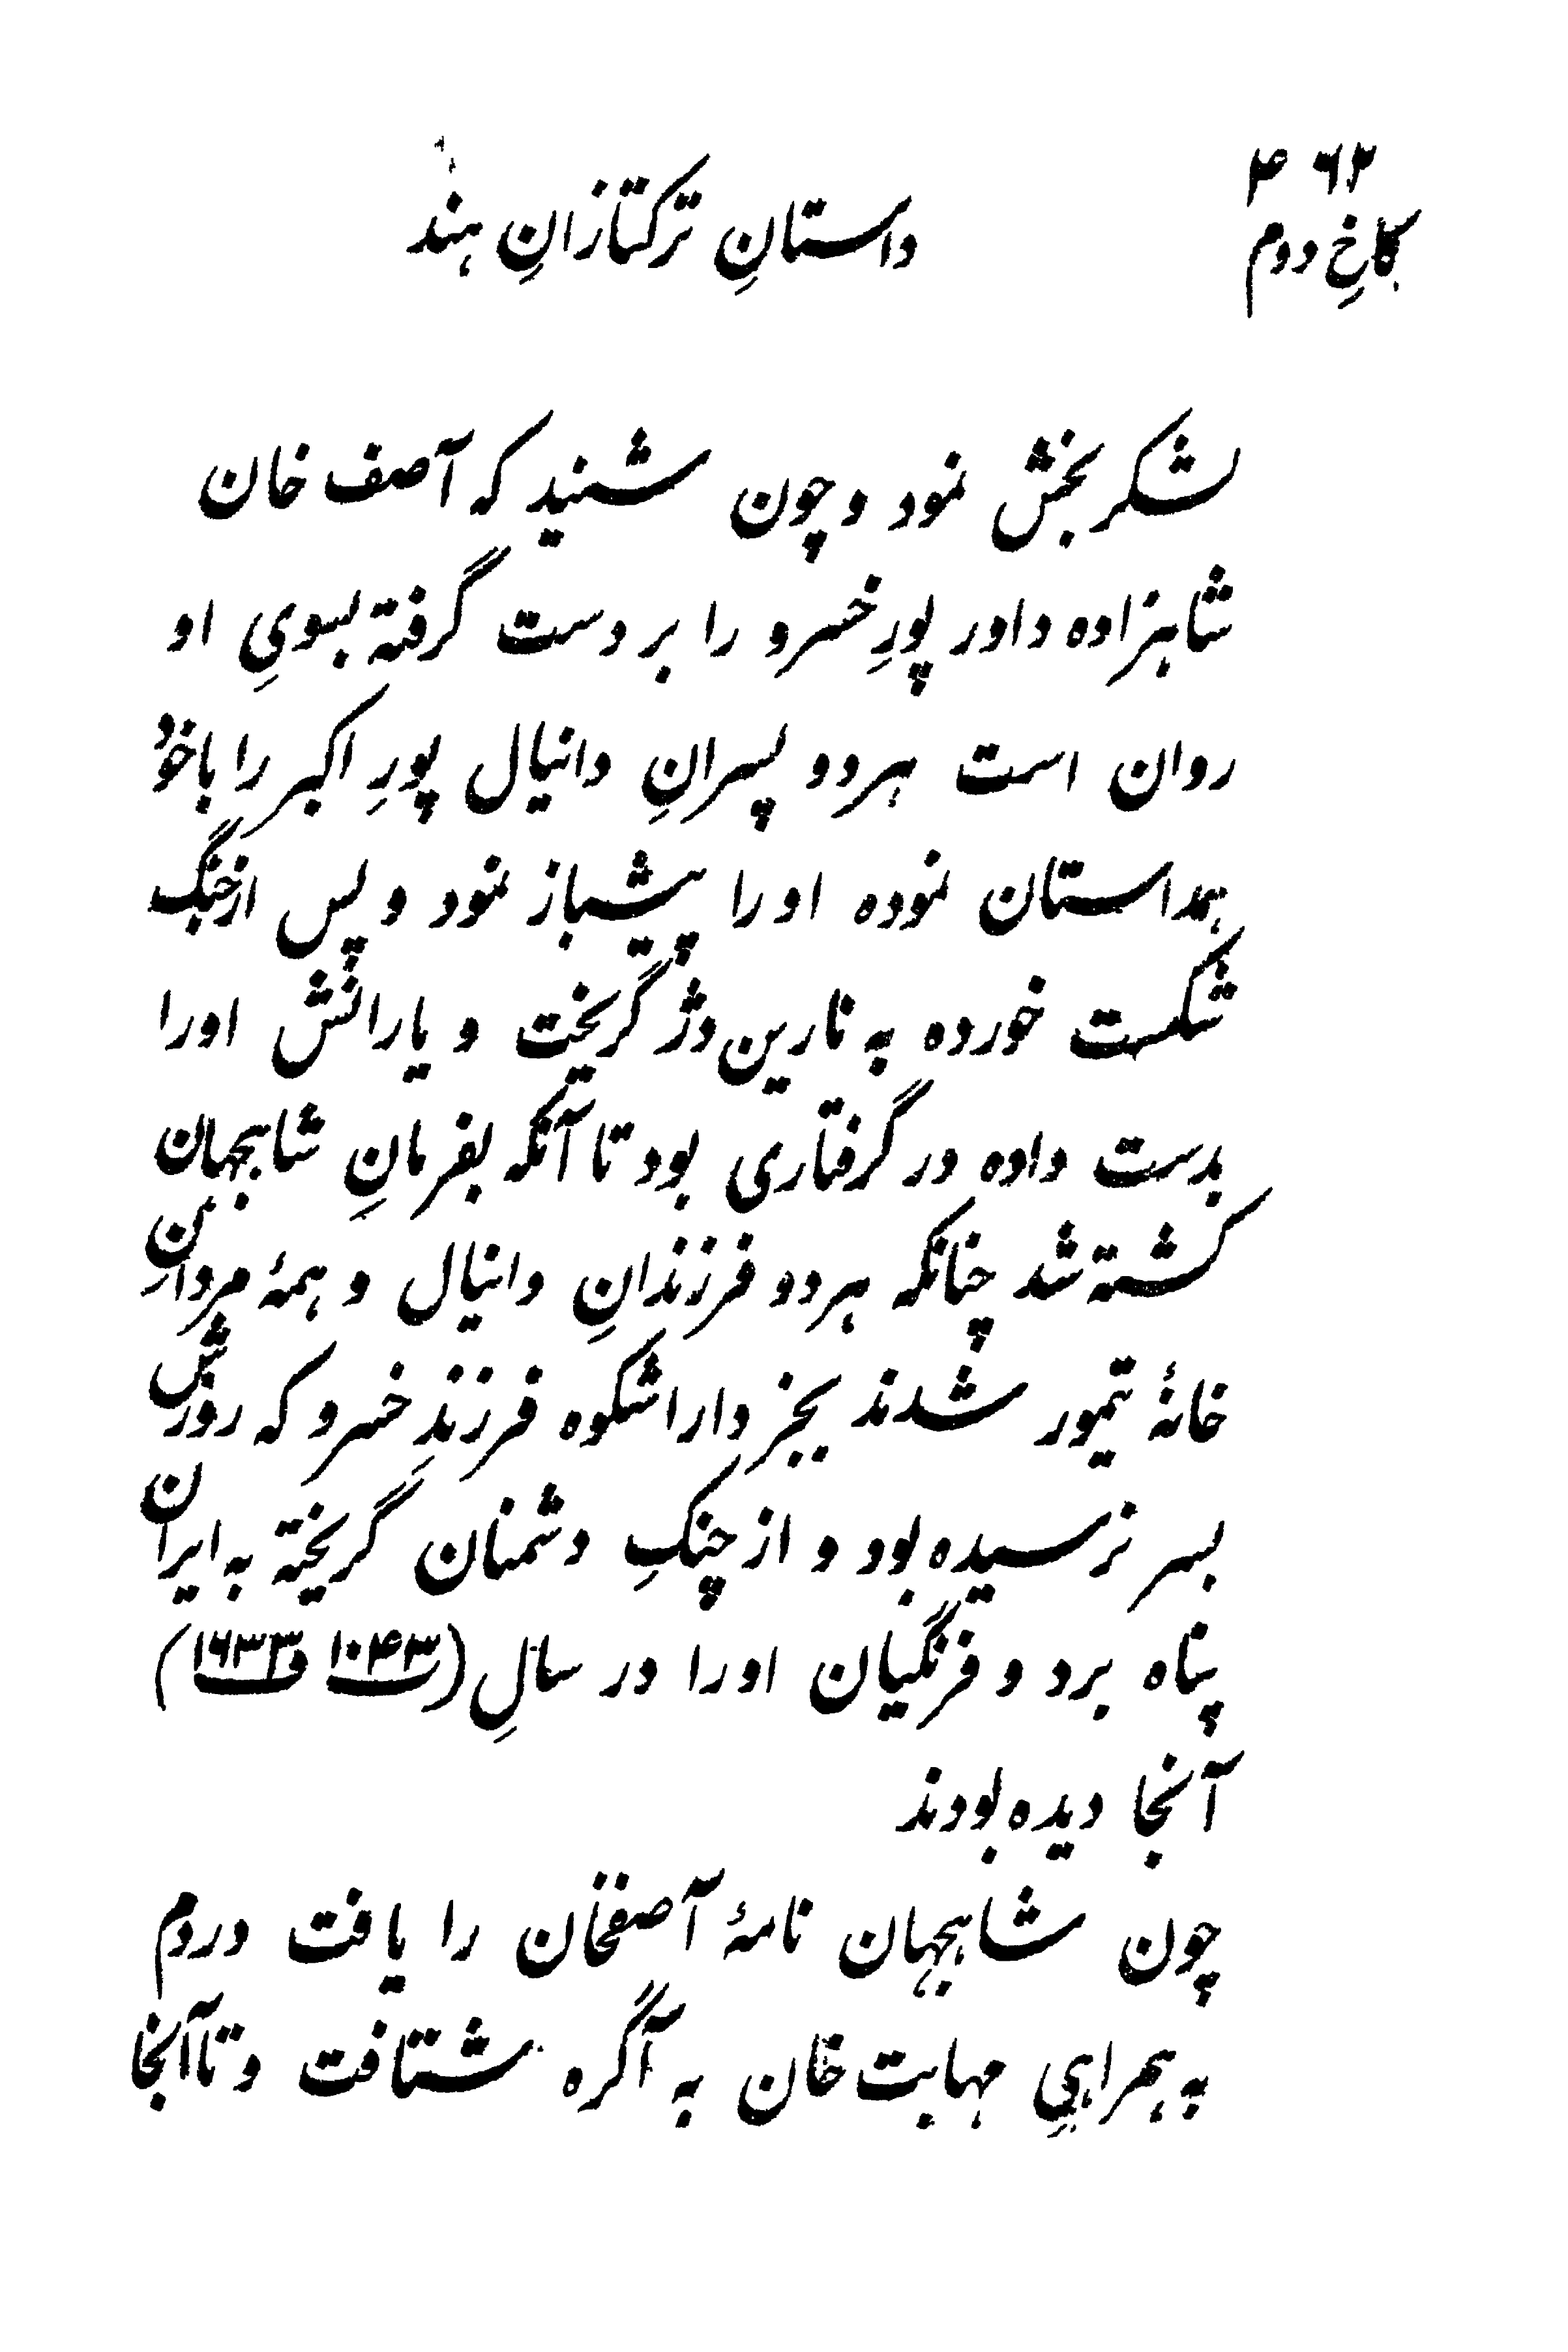 ۴۶۲
داستانِ ترکتازانِ هند
کاخِ دوم
لشکر بخش نمود و چون شنید که آصف خان
شاهزاده داور پورِ خسرو را بر دست گرفته بسویِ او
روان است هر دو پسرانِ دانیال پورِ اکبر را با خود
همداستان نموده او را پیشباز نمود و پس از جنگ
شکست خورده به نارین دژ گریخت و یارانش او را
بدست داده در گرفتاری بود تا آنکه بفرمانِ شاهجهان
کشته شد چنانکه هر دو فرزندانِ دانیال و همهٔ مردانِ این
خانهٔ تیمور شدند بجز داراشکوه فرزندِ خسرو که روزش
بسر نرسیده بود و از چنگِ دشمنان گریخته به ایران
پناه برد و فرنگیان او را در سالِ (۱۰۴۳ و ۱۶۳۳)
آنجا دیده بودند
چون شاهجهان نامهٔ آصفخان را یافت دردم
به همراهیِ مهابت خان به آگره شتافت و تا آنجا